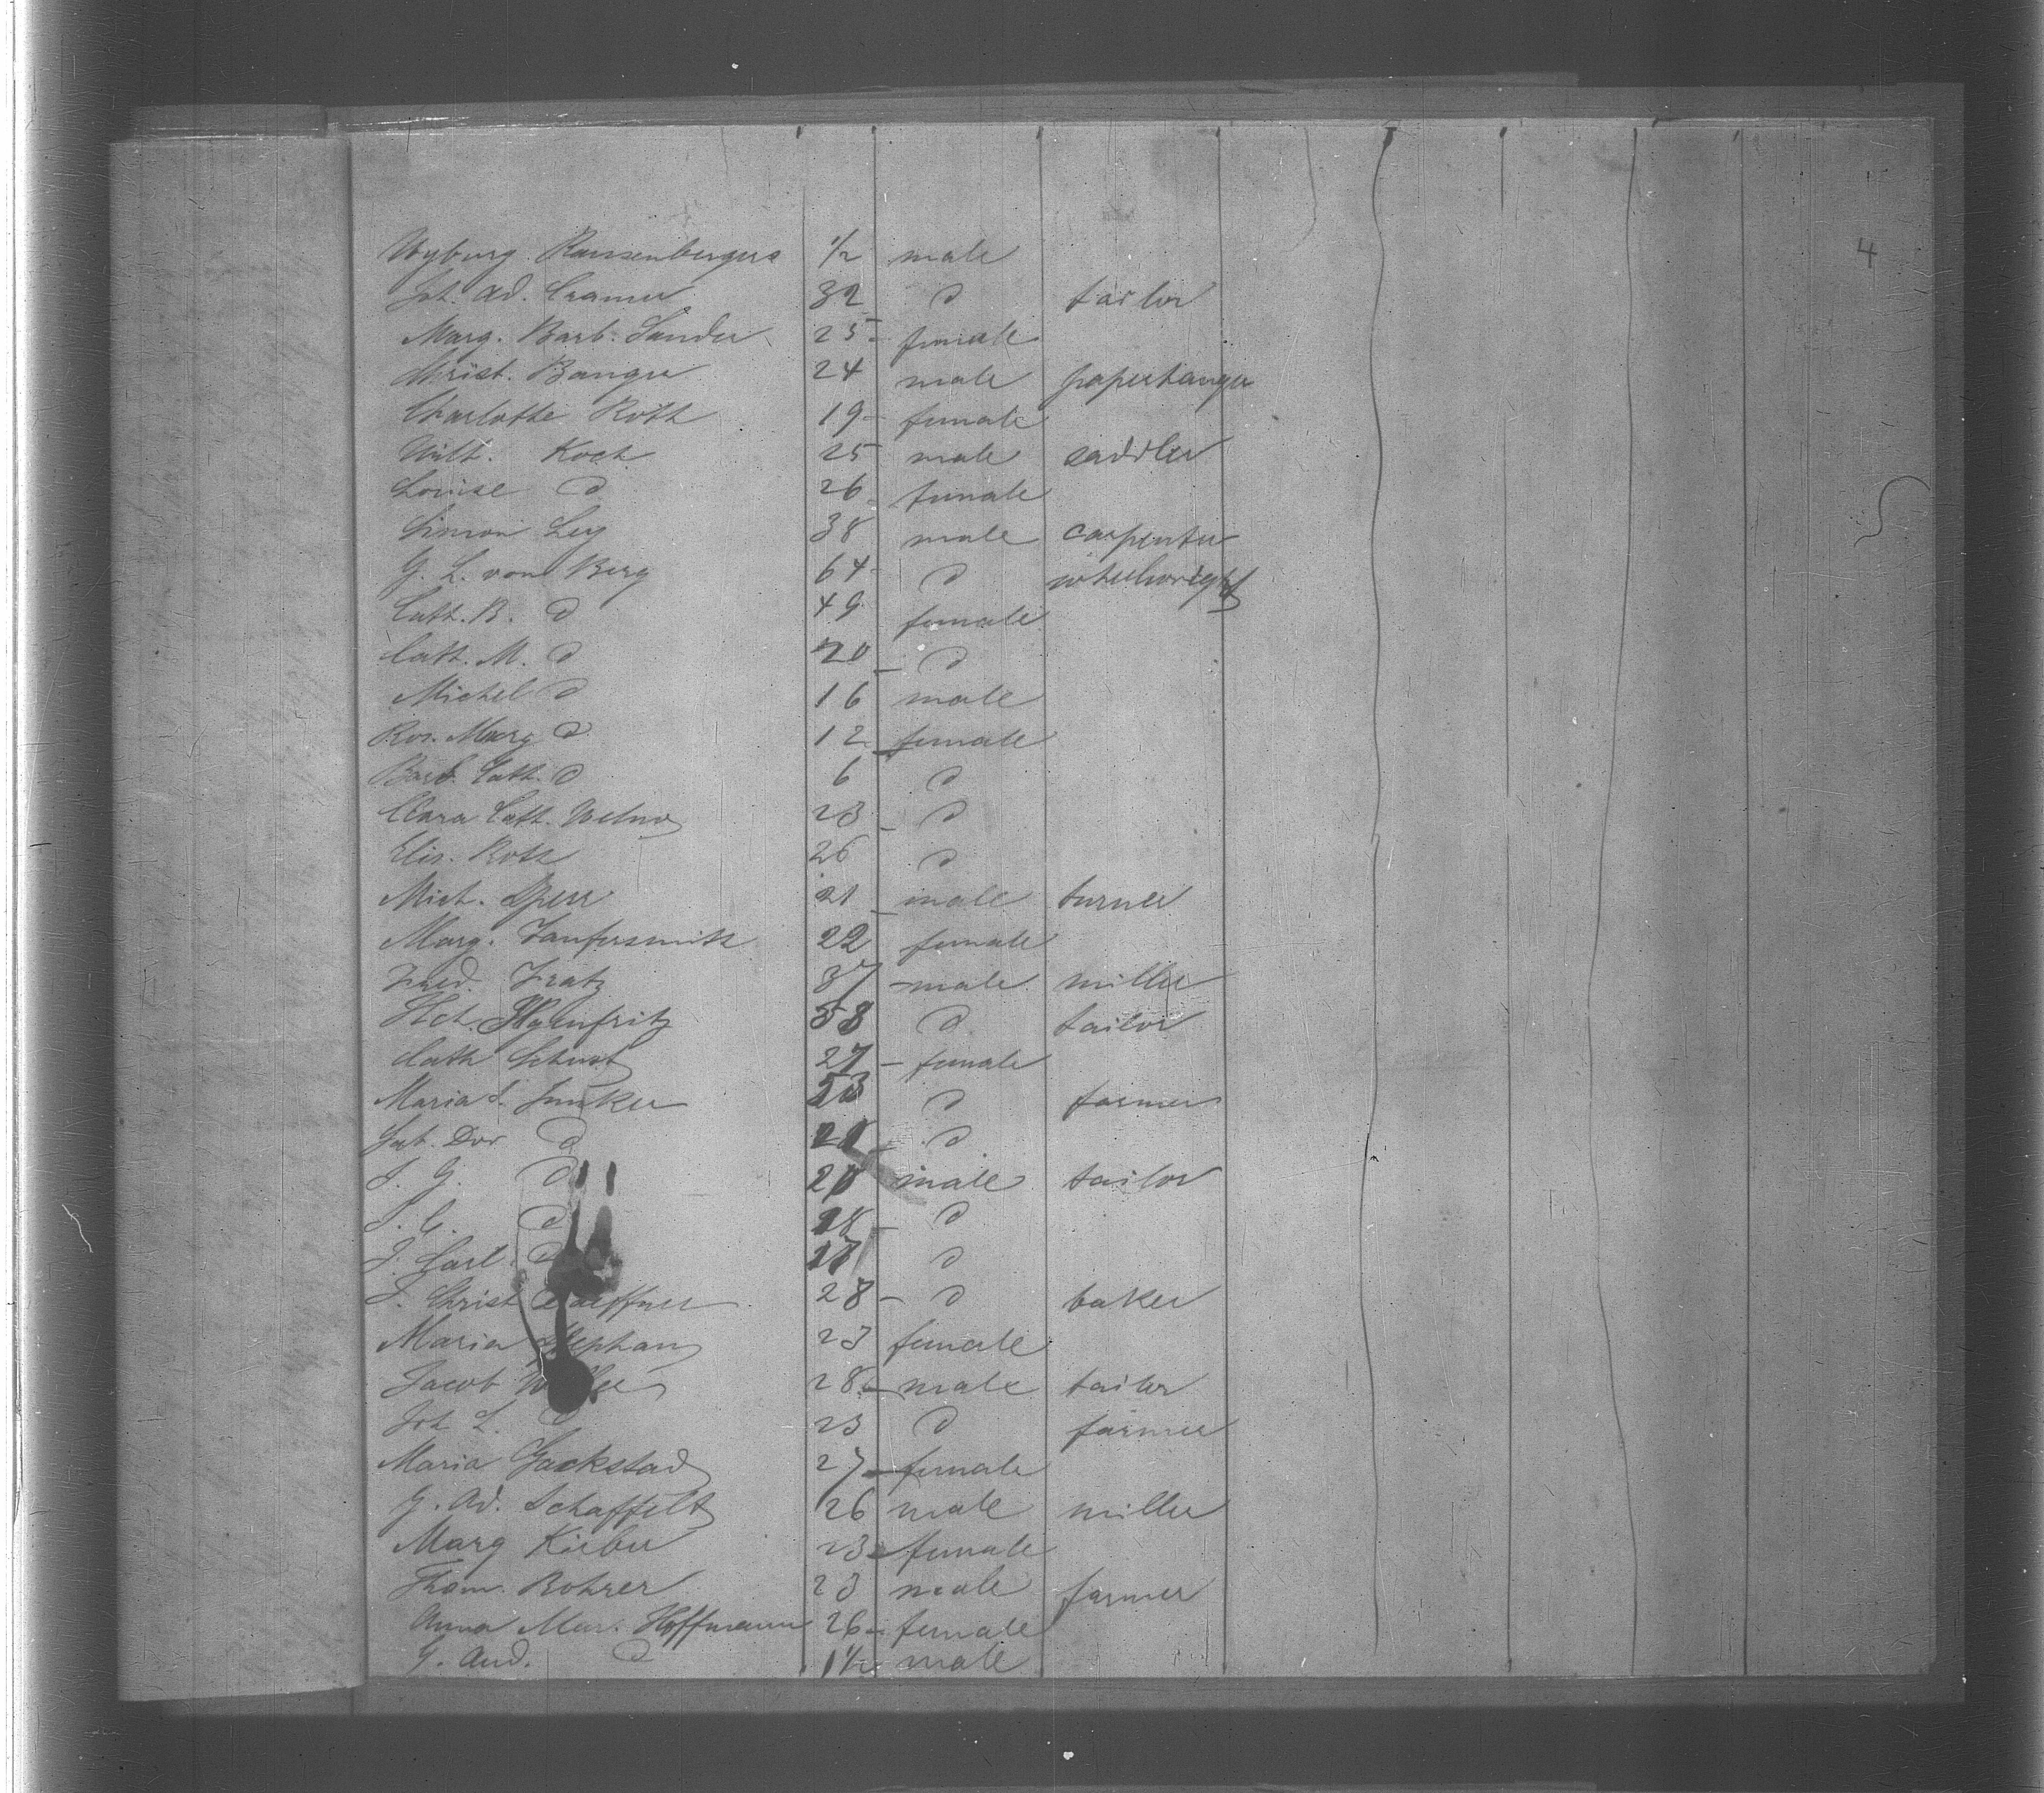 4
Wyburg Ransenbergers 1/2 male
Joh. Ad. Cramer 32 d tailor
Marg. Barb. Sander 25 - female
Christ. Banger 24 male paperhanger
Charlotte Roth 19 - female
Wilh. Koch 25 male saddler
Louise d 26 - female
Simon Ley 38 male carpenter
G. L. von Berg 64 - d wheelwright
Cath. B. d 49 female
Cath. M. d 20 - d
Michel d 16 male
Ros. Marg d 12 - female
Barb. Cath. d 6 d
Clara Cath. 23 - d
Elis. Roth 26 d
Mich. Sperr 21 - male turner
Marg. 22 female
Fried. Fratz 37 - male miller
Hch. 53 d tailor
Cath 27 - female
Maria S. Junker 23 d farmer
Dor d d
J. G. d 20 male tailor
J. C. d 18 - d
J. Carl d 17 d
J. Christ 28 - d baker
Maria Stephan 23 female
Jacob 28 - male tailor
Joh L. d 23 d farmer
Maria Gackstad 27 - female
G. Ad. Schaffelt 26 male miller
Marg Kieber 23 - female
Thom. Rohrer 23 male farmer
Anna Mar. Hoffmann 26 - female
G. And. d 1 1/2 male